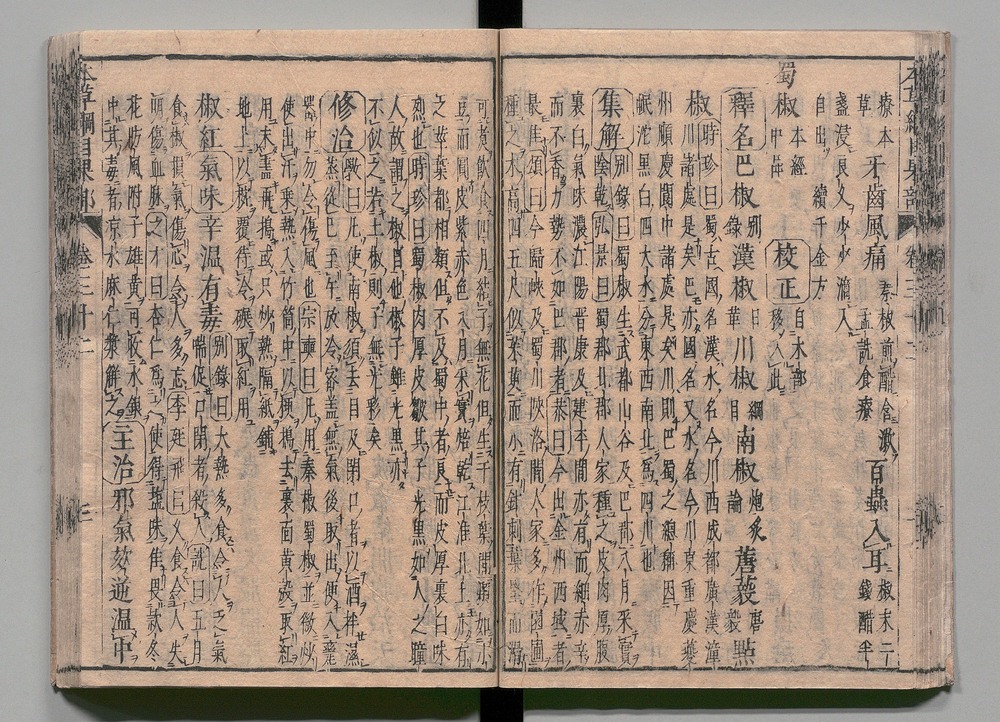 療本
草
牙齒風痛
秦椒煎醋含漱
孟詵食療
百蟲入耳
椒末一
錢醋半
盞浸良久少少滴入
自出 續千金方
蜀椒 本經中品 校正 自木部移入此
釋名巴椒 別錄 漢椒 日華 川椒 綱目 南椒 炮炙 蓎藙 唐毅 點
椒 時珍曰蜀古國名漢水名今川西成都廣漢潼
川諸處是矣巴亦國名又水名今川東重慶夔
州順慶閬中諸處是矣川則巴蜀之總稱因
岷沱黑白四大水分東西南北為四川也
集解 別錄曰蜀椒生武都山谷及巴郡八月采實
陰乾弘景曰蜀郡北部人家種之皮肉厚腹
裏白氣味濃江陽晉康及建平間亦有而細赤辛
而不香力勢不如巴郡者恭曰今出金州西域者
最佳頌曰今歸峽及蜀川陝洛間人家多作園圃
種之木高四五尺似茱萸而小有針刺葉堅而滑
可煮飲食四月結子無花但生于枝葉間顆如小
豆而圓皮紫赤色八月采實焙乾江淮北土亦有
之莖葉都相類但不及蜀中者良而皮厚裏白味
烈也時珍曰蜀椒肉厚皮皺其子光黑如人之瞳
人故謂之椒目他椒子雖光黑亦
不似之若土椒則子無光彩矣
修治 斅曰凡使南椒須去目及閉口者以酒拌濕
蒸從巳至午放冷密蓋無氣後取出便入瓷
器中勿令傷風也宗奭曰凡用秦椒蜀椒並微炒
使出汗乘熱入竹筒中以梗搗去裏面黃殼取紅
用未盡再搗或只炒熱隔紙鋪
地上以碗覆待冷碾取紅用
椒紅氣味辛溫有毒 別錄曰大熱多食令人乏氣
喘促口閉者殺人詵曰五月
食椒損氣傷心令人多忘李廷飛曰久食令人失
明傷血脈之才曰杏仁為之使得鹽味佳畏款冬
花防風附子雄黃可收水銀
中其毒者凉水麻仁漿解之 主治邪氣欬逆溫中
本草綱目果部 卷三十二 三